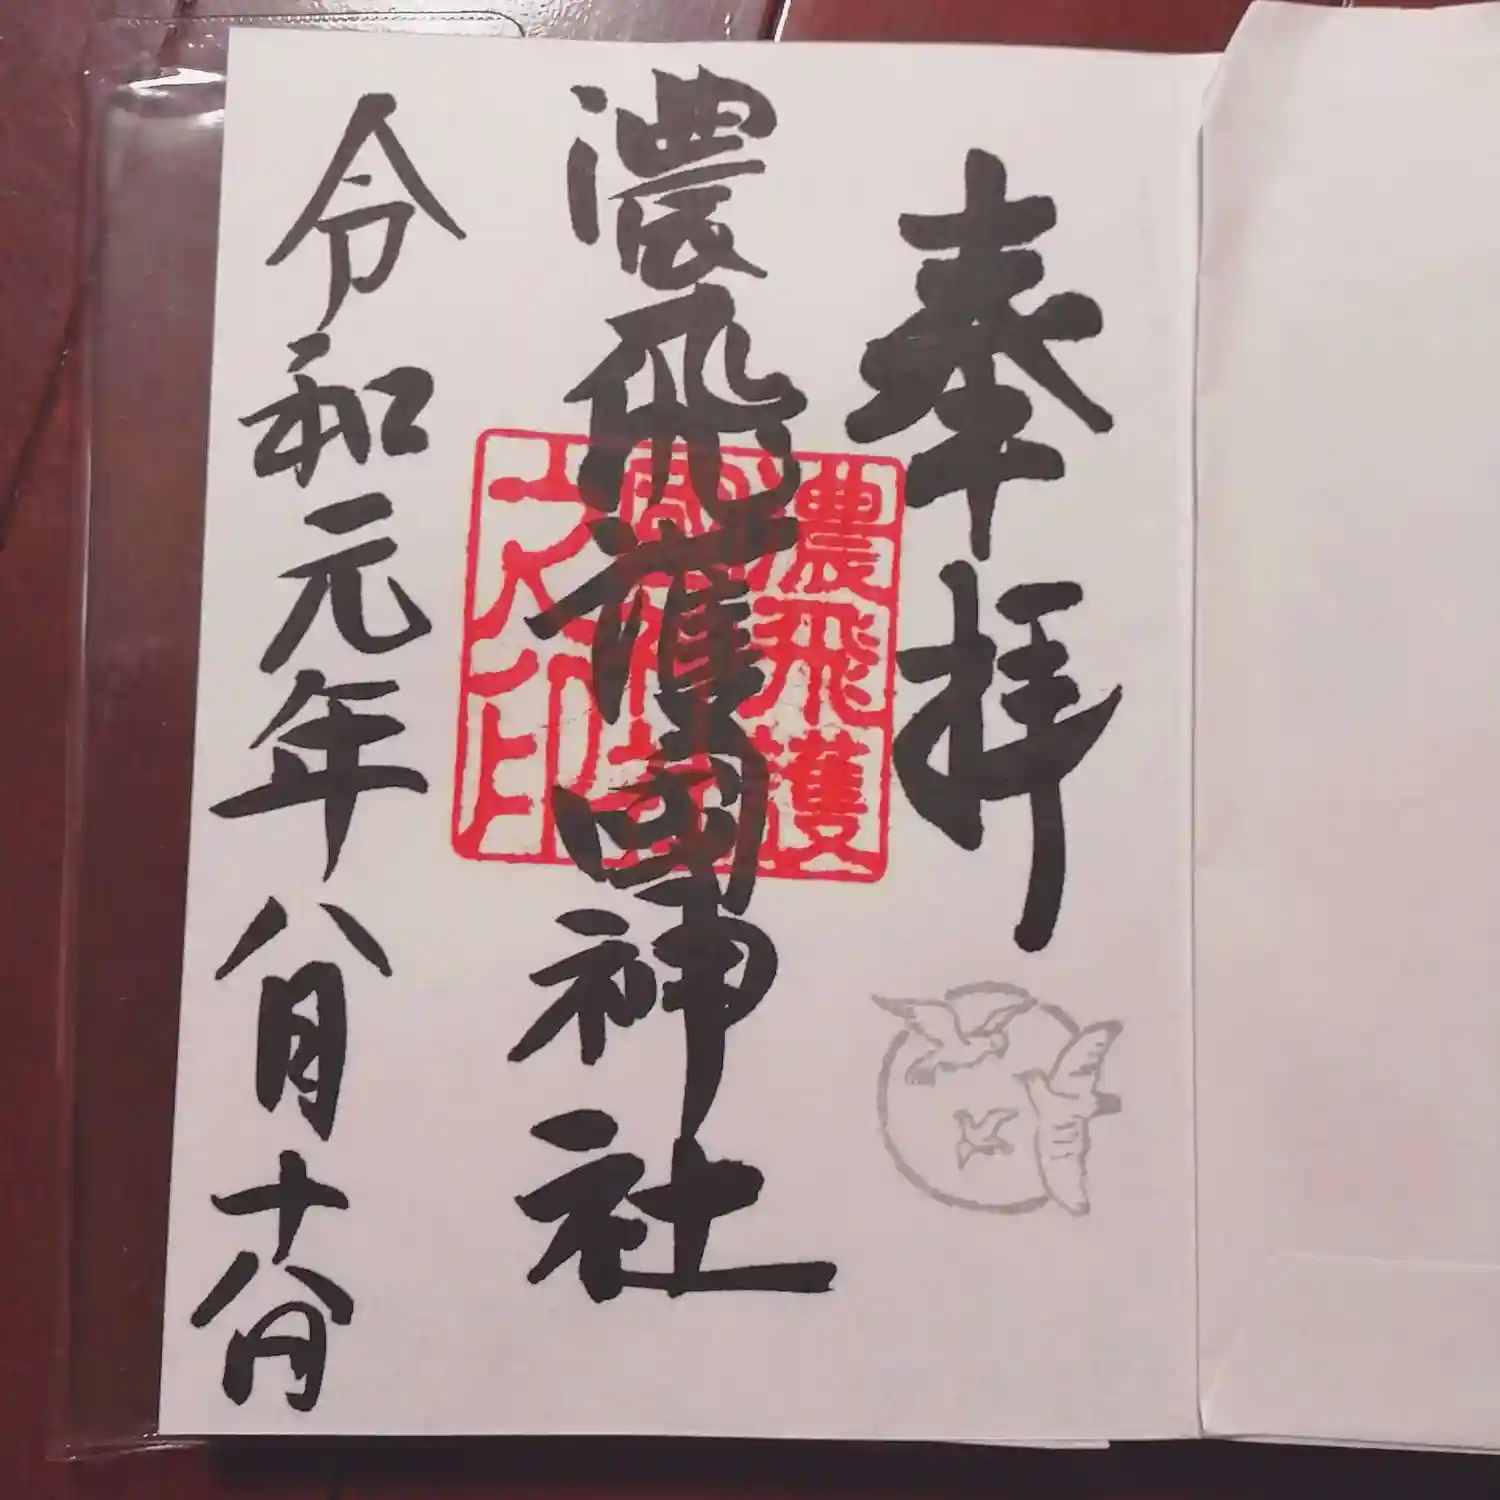 奉拝
濃飛護國神社
令和元年八月十八日
濃飛護
印